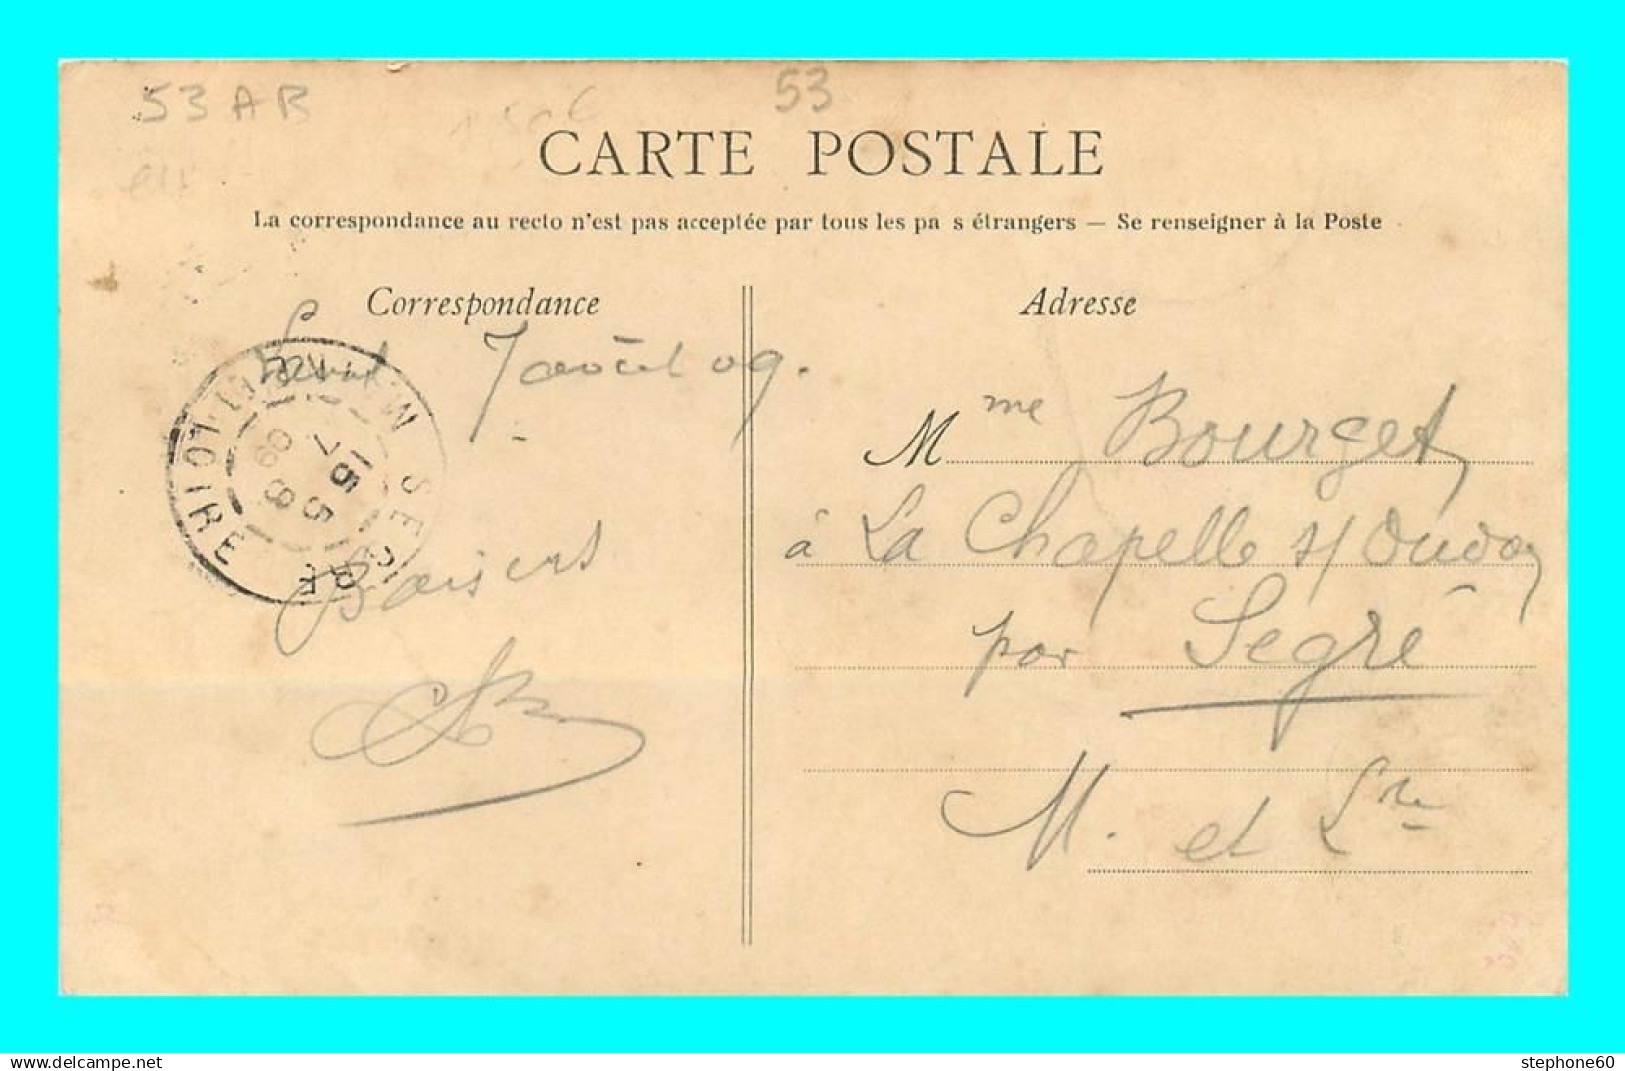 53 AB
53
CARTE POSTALE
La correspondance au recto n'est pas acceptée par tous les pa s étrangers — Se renseigner à la Poste
Correspondance
Adresse
Laval 7 août 09.
Mme Bourget
à La Chapelle s/ Oudon
par Segré
M. et Lre
Baisers
SEGRE
MAINE-ET-LOIRE
15 5
7 8
09
www.delcampe.net
stephone60